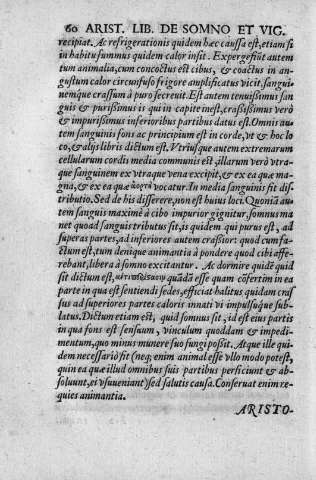 60 ARIST. LIB. DE SOMNO ET VIG.
recipiat. Ac refrigerationis quidem hæc caussa est, etiam si
in habitu summus quidem calor insit. Expergefiũt autem
tum animalia, cum concoctus est cibus, & coactus in an-
gustum calor circumfuso frigore amplificatus vicit, sangui-
nemque crassum à puro secreuit. Est autem tenuissimus san
guis & purissimus is qui in capite inest, crassissimus verò
& impurissimus inferioribus partibus datus est. Omnis au-
tem sanguinis fons ac principium est in corde, vt & hoc lo
co, & alijs libris dictum est. Vtriusque autem extremarum
cellularum cordis media communis est, illarum verò vtra-
que sanguinem ex vtraque vena excipit, & ex ea quæ ma-
gna, & ex ea quæ ἀορτὴ vocatur. In media sanguinis fit dis-
tributio. Sed de his disserere, non est huius loci. Quoniã au-
tem sanguis maximè à cibo impurior gignitur, somnus ma
net quoad sanguis tributus sit, is quidem qui purus est, ad
superas partes, ad inferiores autem crassior: quod cum fa-
ctum est, tum denique animantia à pondere quod cibi affe-
rebant, libera à somno excitantur. Ac dormire quidẽ quid
sit dictum est, quãdã esse quam cõfertim in ea
parte in qua est sentiendi sedes, efficiat halitus quidam cras
sus ad superiores partes caloris innati vi impulsúque sub-
latus. Dictum etiam est, quid somnus sit, id est eius partis
in qua fons est sensuum, vinculum quoddam & impedi-
mentum, quo minus munere suo fungi possit. Atque ille qui-
dem necessariò fit (neq; enim animal esse vllo modo potest,
quin ea quæ illud omnibus suis partibus perficiunt & ab-
soluunt, ei vsuueniant) sed salutis causa. Conseruat enim re-
quies animantia.
ARISTO-